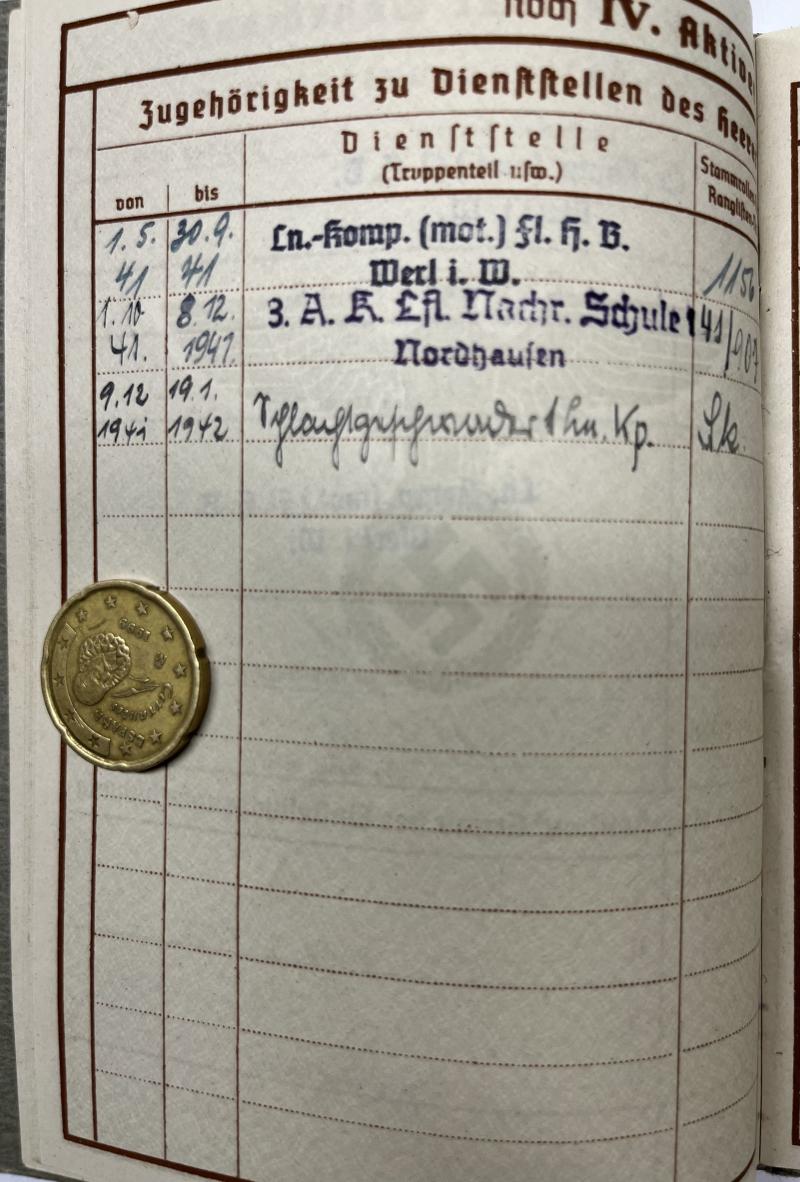 noch IV. Aktive
Zugehörigkeit zu Dienststellen des Heere
von
bis
Dienststelle
(Truppenteil usw.)
Stammrollen
Ranglisten-
1.5. 30.9. Ln.-Komp. (mot.) Fl. H. B.
41 41 Werl i. W. 1156
1.10 8.12. 3. A. K. Lfl. Nachr. Schule 1 41/907
41. 1941. Nordhausen
9.12 19.1.
1941 1942 Schlachtgeschwader 1 Ln. Kp.
1999
ESPAÑA
CERVANTES